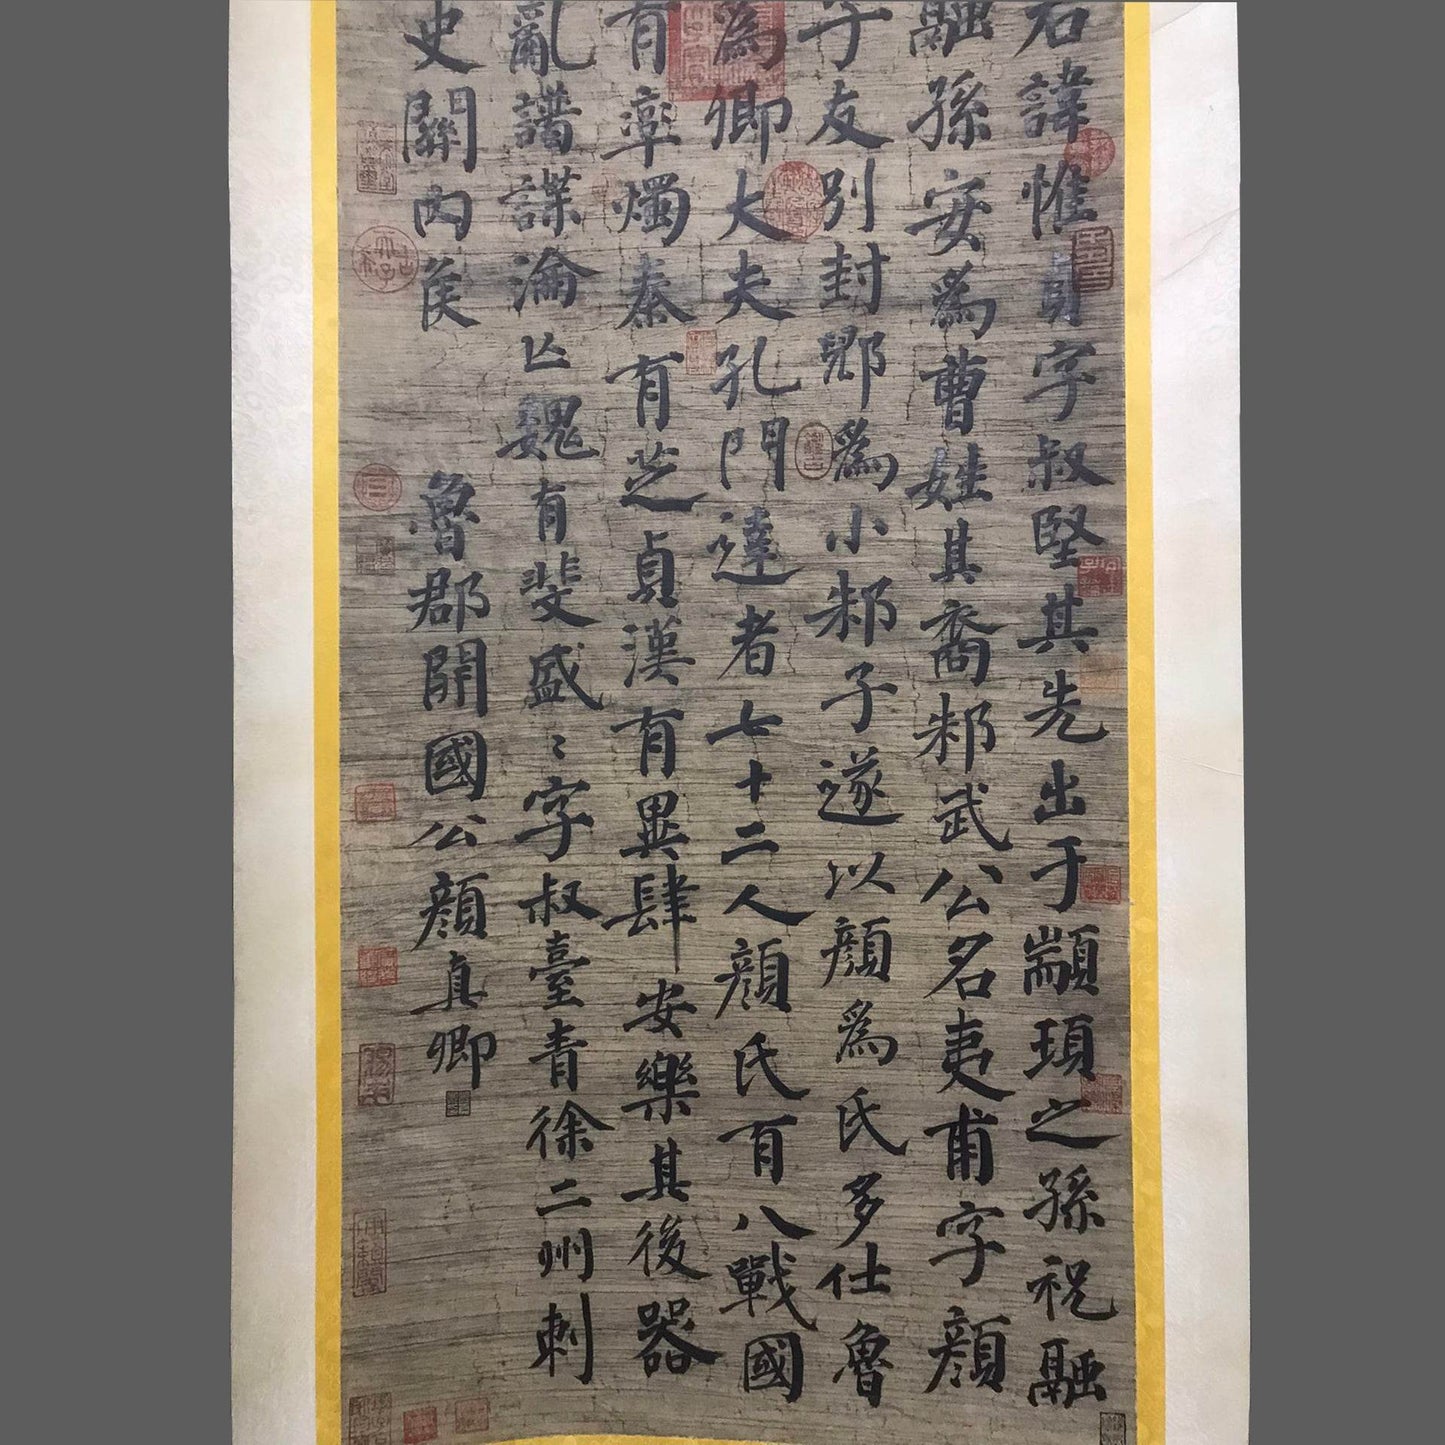 君諱惟貞字叔堅其先出于顓頊之孫祝融
融孫安為曹姓其裔邾武公名夷甫字顏
子友別封郳為小邾子遂以顏為氏多仕魯
為卿大夫孔門達者七十二人顏氏有八戰國
有率燭秦有芝貞漢有異肆安樂其後器
亂譜諜淪亡魏有斐盛〻字叔臺青徐二州刺
史關內侯
魯郡開國公顏真卿